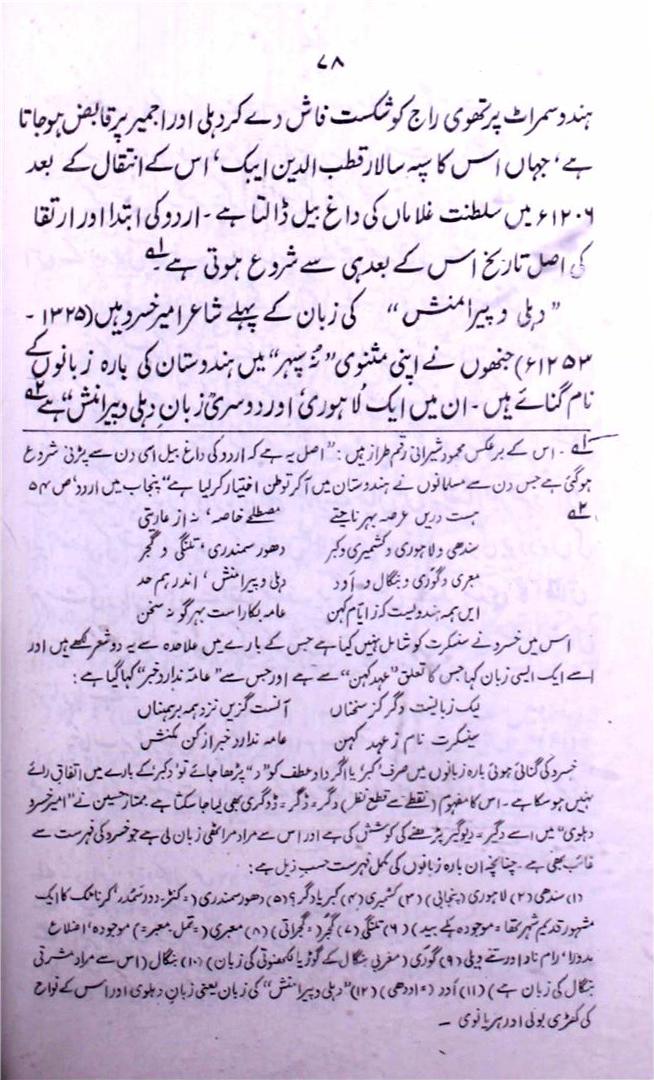 ۷۸
ہندو سمراٹ پرتھوی راج کو شکست فاش دے کر دہلی اور اجمیر پر قابض ہو جاتا
ہے، جہاں اس کا سپہ سالار قطب الدین ایبک، اس کے انتقال کے بعد
۱۲۰۶ء میں سلطنت غلاماں کی داغ بیل ڈالتا ہے۔ اردو کی ابتدا اور ارتقا
کی اصل تاریخ اس کے بعد ہی سے شروع ہوتی ہے ۱؎
”دہلی و پیرامنش“ کی زبان کے پہلے شاعر امیر خسرو ہیں (۱۳۲۵۔
۱۲۵۳ء) جنھوں نے اپنی مثنوی ”نُہ سپہر“ میں ہندوستان کی بارہ زبانوں کے
نام گنائے ہیں۔ ان میں ایک لاہوری اور دوسری زبانِ دہلی و پیرامنش“ ہے ۲؎
۱؎۔ اس کے برعکس محمود شیرانی رقم طراز ہیں: ”اصل یہ ہے کہ اردو کی داغ بیل اسی دن سے پڑنی شروع
ہوگئی ہے جس دن سے مسلمانوں نے ہندوستان میں آکر توطن اختیار کر لیا ہے“ پنجاب میں اردو، ص ۵۴
۲؎ ہست دریں عرصہ بہر ناحیتے مصطلحے خاصہ، نہ از عاریتی
سندھی و لاہوری و کشمیری و کبر دھور سمندری، تلنگی و گجر
معبری و گوری و بنگال و اَود دہلی و پیرامنش، اندر ہمہ حد
ایں ہمہ ہندویست کز ایّام کہن عامہ بکار است بہر گونہ سخن
اس میں خسرو نے سنسکرت کو شامل نہیں کیا ہے جس کے بارے میں علاحدہ سے یہ دو شعر لکھے ہیں اور
اسے ایک ایسی زبان کہا جس کا تعلق ”عہد کہن“ سے ہے اور جس سے ”عامہ ندارد خبر“ کہا گیا ہے:
لیک زبانیست دگر کز سخناں آنست گزیں نزد ہمہ برہمناں
سنسکرت نام ز عہد کہن عامہ ندارد خبر از کن مکنش
خسرو کی گنائی ہوئی بارہ زبانوں میں صرف ’کبر‘ یا اگر واو عطف کو ”د“ پڑھا جائے تو ’دکبر‘ کے بارے میں اتفاق رائے
نہیں ہو سکا ہے۔ اس کا مفہوم (نقطے سے قطع نظر) دگر = ڈگر = ڈوگری بھی لیا جا سکتا ہے ممتاز حسین نے ”امیر خسرو
دہلوی“ میں اسے دگیر = دیوگیر پڑھنے کی کوشش کی ہے اور اس سے مراد مراٹھی زبان لی ہے جو خسرو کی فہرست سے
غائب بھی ہے۔ چنانچہ ان بارہ زبانوں کی مکمل فہرست حسب ذیل ہے:
(۱) سندھی (۲) لاہوری (پنجابی) (۳) کشمیری (۴) کبر یا دگر؟ (۵) دھور سمندری (= کنڑ۔ دور سمندر، کرناٹک کا ایک
مشہور قدیم شہر تھا = موجودہ ہلے بید) (۶) تلنگی (۷) گجر (= گجراتی) (۸) معبری (= تمل۔ معبر =) موجودہ، اضلاع
مدورا، رام ناد اور تنے ویلی (۹) گوری (مغربی بنگال کے گوڑ یا لکھنوتی کی زبان) (۱۰) بنگال (اس سے مراد مشرقی
بنگال کی زبان ہے) (۱۱) اَود (= اودھی) (۱۲) ”دہلی و پیرامنش“ کی زبان یعنی زبانِ دہلوی اور اس کے نواح
کی کھڑی بولی اور ہریانوی۔